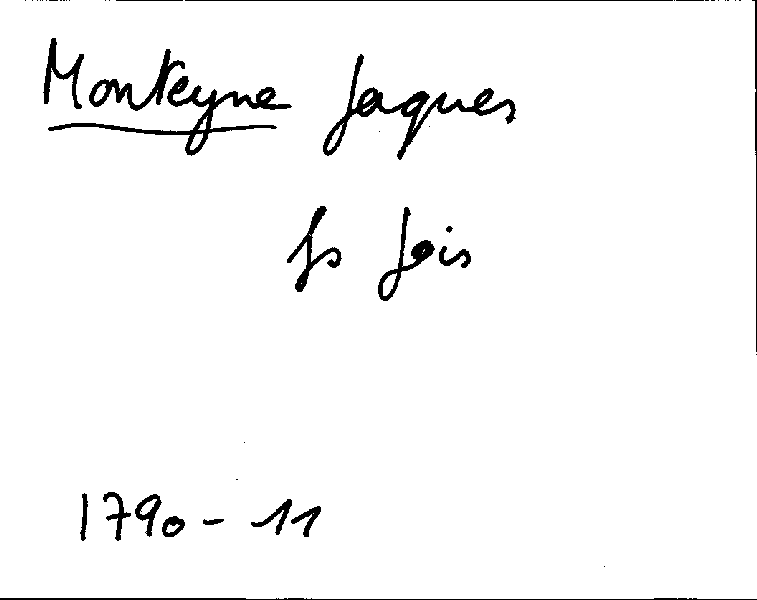 Monteyne Jaques
fs Jois
1790 - 11